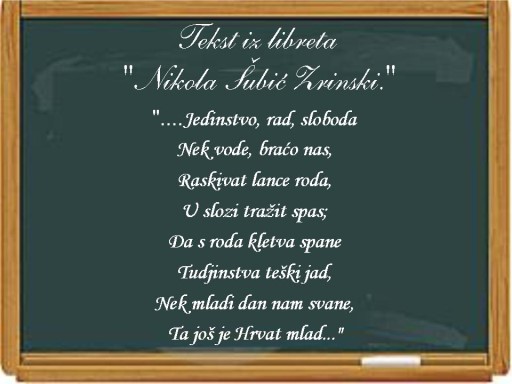 Tekst iz libreta
"Nikola Šubić Zrinski."
"....Jedinstvo, rad, sloboda
Nek vode, braćo nas,
Raskivat lance roda,
U slozi tražit spas;
Da s roda kletva spane
Tudjinstva teški jad,
Nek mladi dan nam svane,
Ta još je Hrvat mlad..."